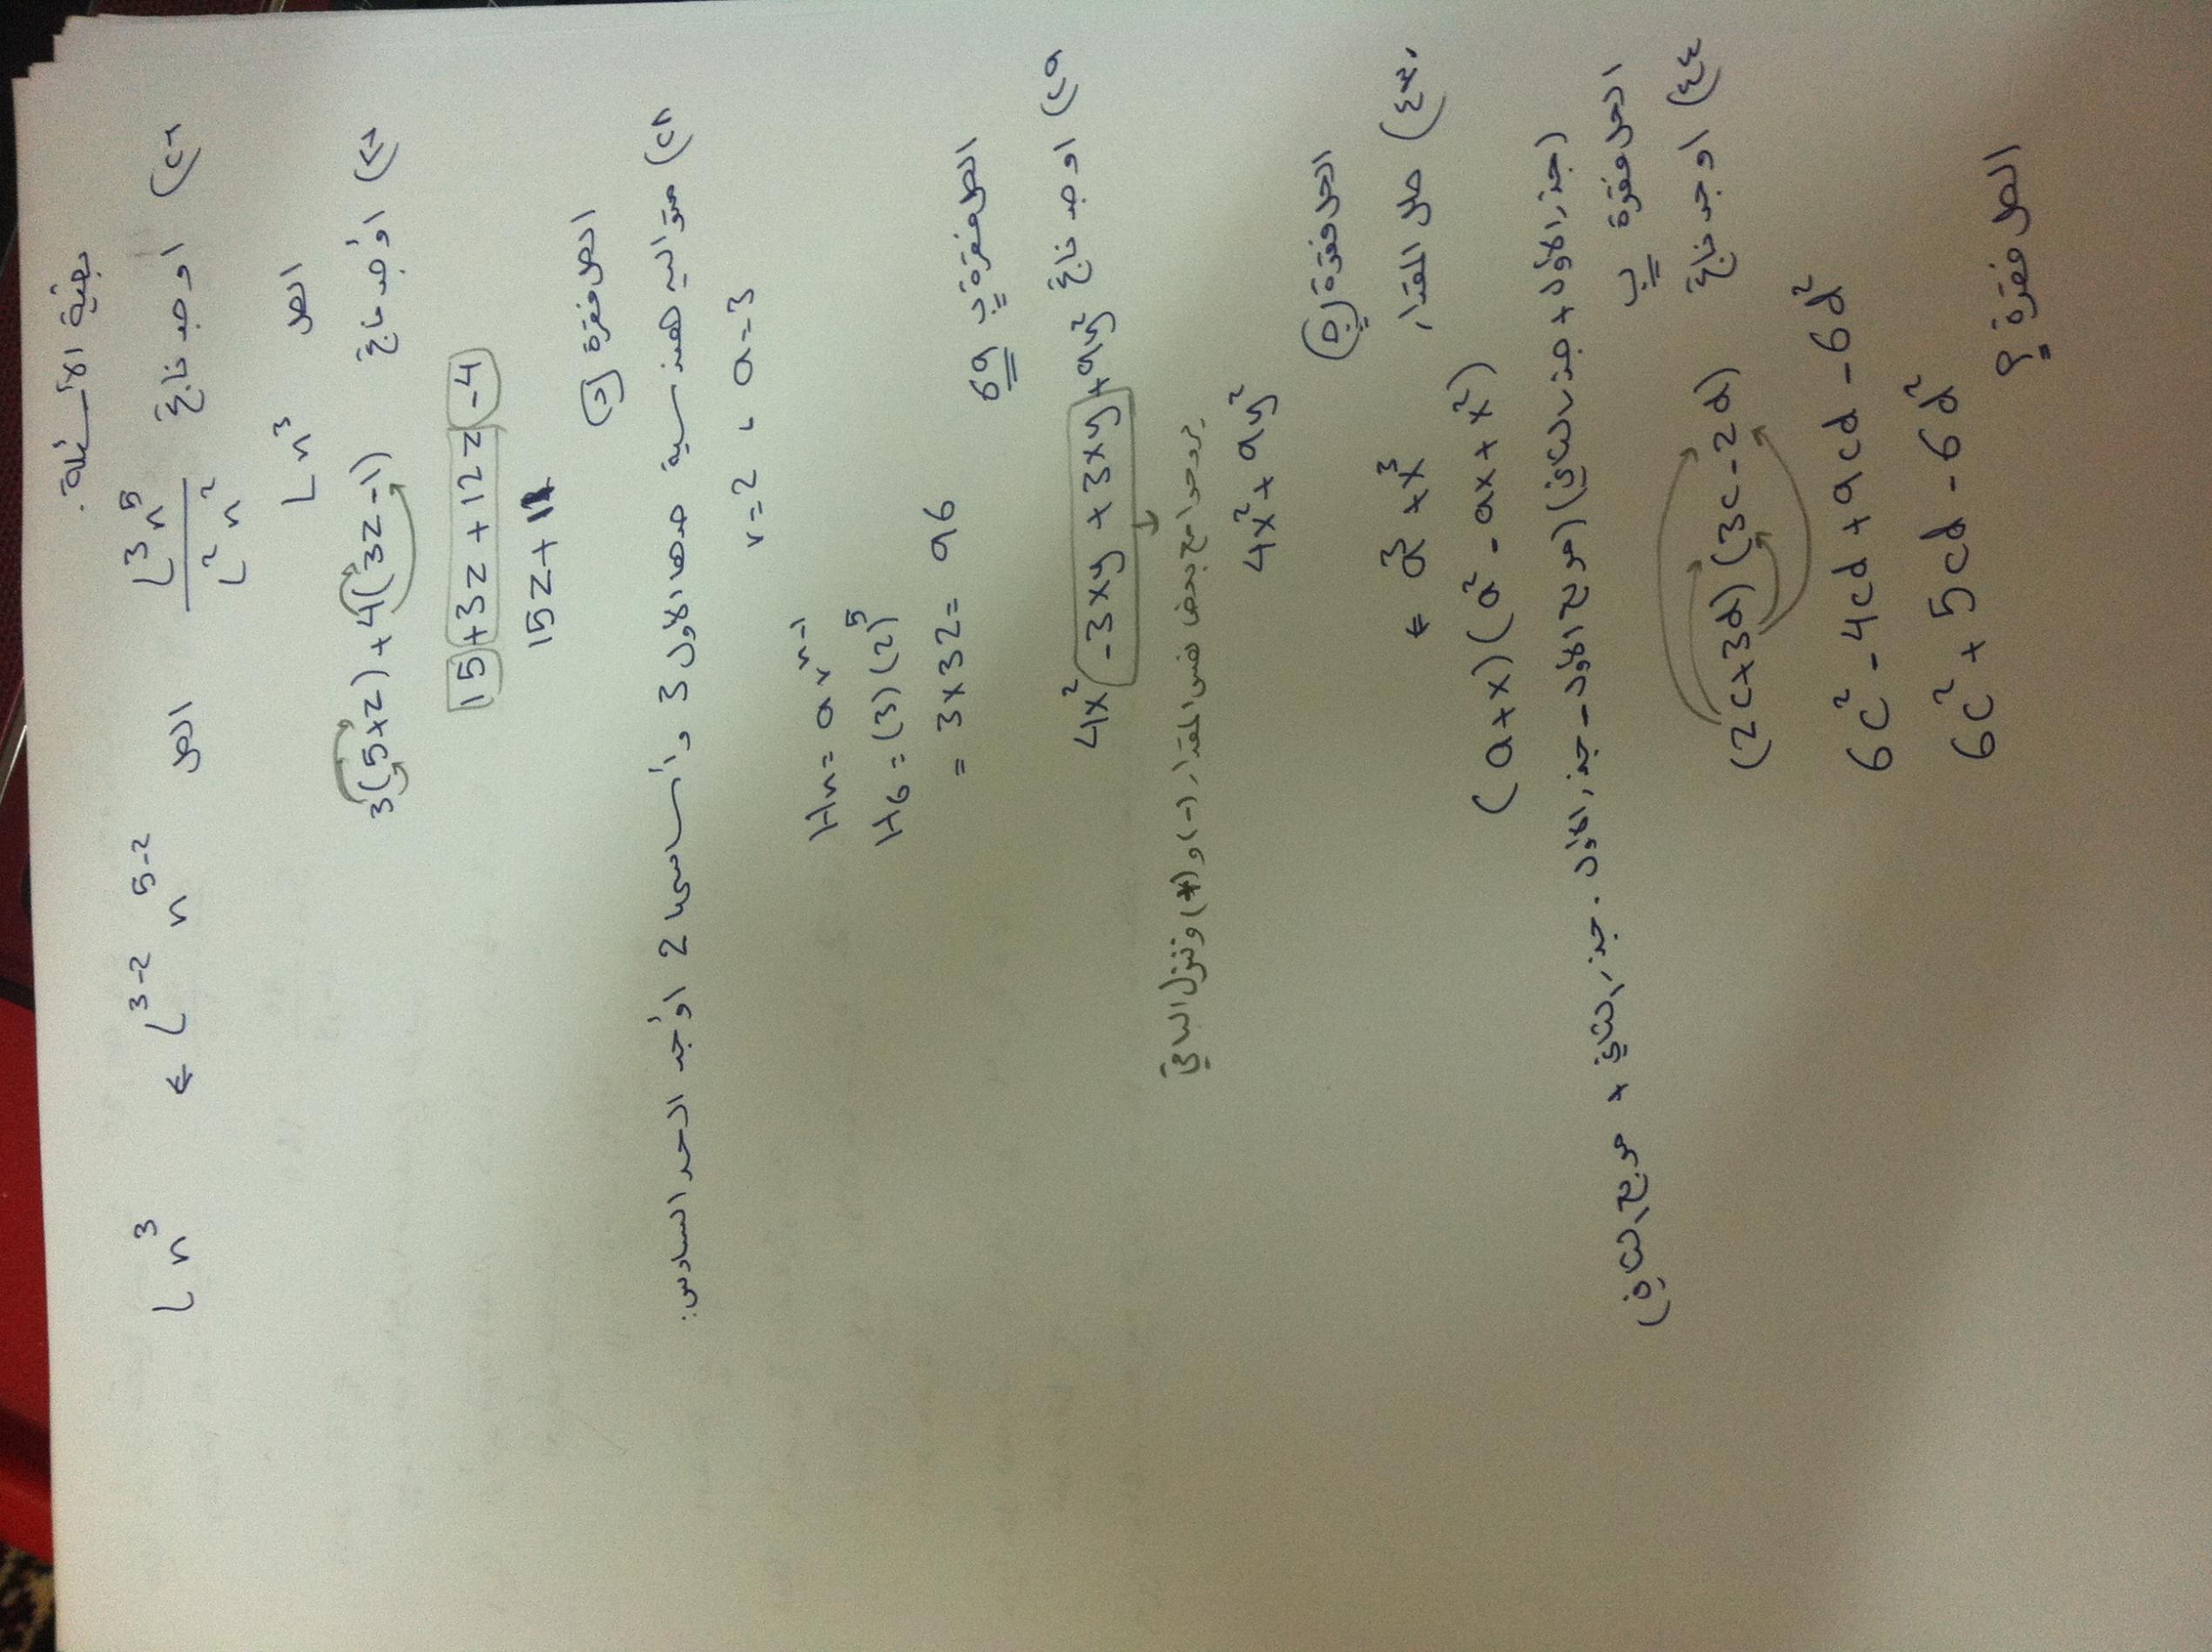 بقية الأسئلة.
٢٦) اوجد ناتج L³n⁵ / L²n² الحل L³⁻² n⁵⁻² ⇐ Ln³
الحل Ln³
٢٧) اوجد ناتج 3(5+z)+4(3z-1)
15+3z+12z-4
15z+11
الحل فقرة (د)
٢٨) متواليه هندسية حدها الاول 3 وأساسها 2 اوجد الحد السادس:
r=2 ، a=3
Hn= a rⁿ⁻¹
H6= (3)(2)⁵
= 3x32= 96
الحل فقرة ب 69
٢٩) اوجد ناتج 4x²-3xy+3xy+9y²
يروحوا مع بعض نفس المقدار (-) و(+) وننزل الباقي
4x²+9y²
الحل فقرة (ج)
٤٣) حلل المقدار a³+x³ ⇐
(a+x)(a²-ax+x²)
(جذر الأول + جذر الثاني)(مربع الأول - جذر الأول . جذر الثاني + مربع الثاني)
الحل فقرة ب
٤٤) اوجد ناتج (2c+3d)(3c-2d)
6c²-4cd+9cd-6d²
6c²+5cd-6d²
الحل فقرة أ